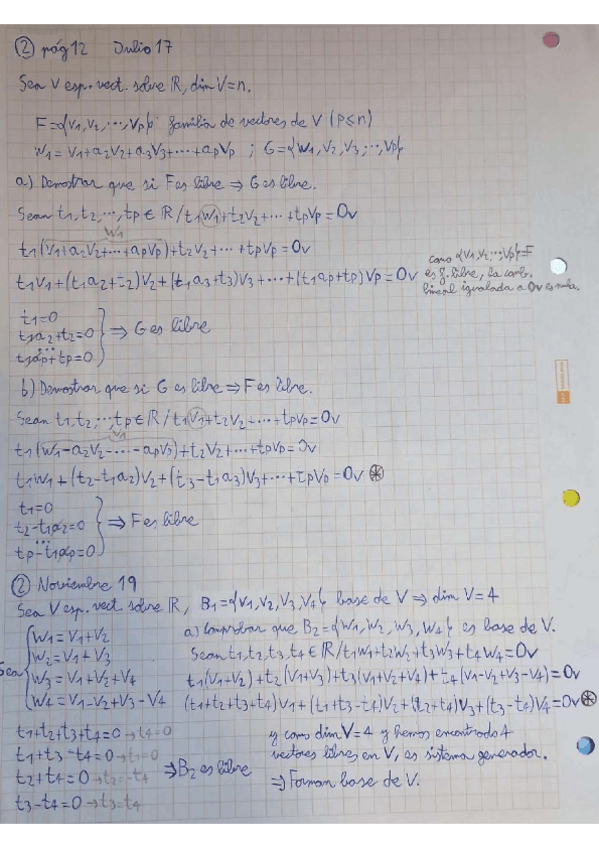 ② pág 12 Julio 17
Sea V esp. vect. sobre ℝ, dim V=n.
F={v1, v2, ..., vp} familia de vectores de V (p≤n)
w1 = v1+a2v2+a3v3+...+apvp ; G={w1, v2, v3, ..., vp}
a) Demostrar que si F es libre ⇒ G es libre.
Sean t1, t2, ..., tp ∈ ℝ / t1w1+t2v2+...+tpvp=0v
w1
t1(v1+a2v2+...+apvp)+t2v2+...+tpvp=0v
t1v1+(t1a2+t2)v2+(t1a3+t3)v3+...+(t1ap+tp)vp=0v
como {v1, v2, ..., vp}=F
es f. libre, la comb.
lineal igualada a 0v es nula.
t1=0
t1a2+t2=0
...
t1ap+tp=0
⇒ G es libre
b) Demostrar que si G es libre ⇒ F es libre.
Sean t1, t2, ..., tp ∈ ℝ / t1v1+t2v2+...+tpvp=0v
v1
t1(w1-a2v2-...-apvp)+t2v2+...+tpvp=0v
t1w1+(t2-t1a2)v2+(t3-t1a3)v3+...+tpvp=0v ⊛
t1=0
t2-t1a2=0
...
tp-t1ap=0
⇒ F es libre
② Noviembre 19
Sea V esp. vect. sobre ℝ, B1={v1, v2, v3, v4} base de V ⇒ dim V=4
Sean
w1=v1+v2
w2=v1+v3
w3=v1+v2+v4
w4=v1-v2+v3-v4
a) Comprobar que B2={w1, w2, w3, w4} es base de V.
Sean t1, t2, t3, t4 ∈ ℝ / t1w1+t2w2+t3w3+t4w4=0v
t1(v1+v2)+t2(v1+v3)+t3(v1+v2+v4)+t4(v1-v2+v3-v4)=0v
(t1+t2+t3+t4)v1+(t1+t3-t4)v2+(t2+t4)v3+(t3-t4)v4=0v ⊛
t1+t2+t3+t4=0 → t4=0
t1+t3-t4=0 → t1=0
t2+t4=0 → t2=-t4
t3-t4=0 → t3=t4
⇒ B2 es libre
y como dim V=4 y hemos encontrado 4
vectores libres en V, es sistema generador.
⇒ Forman base de V.